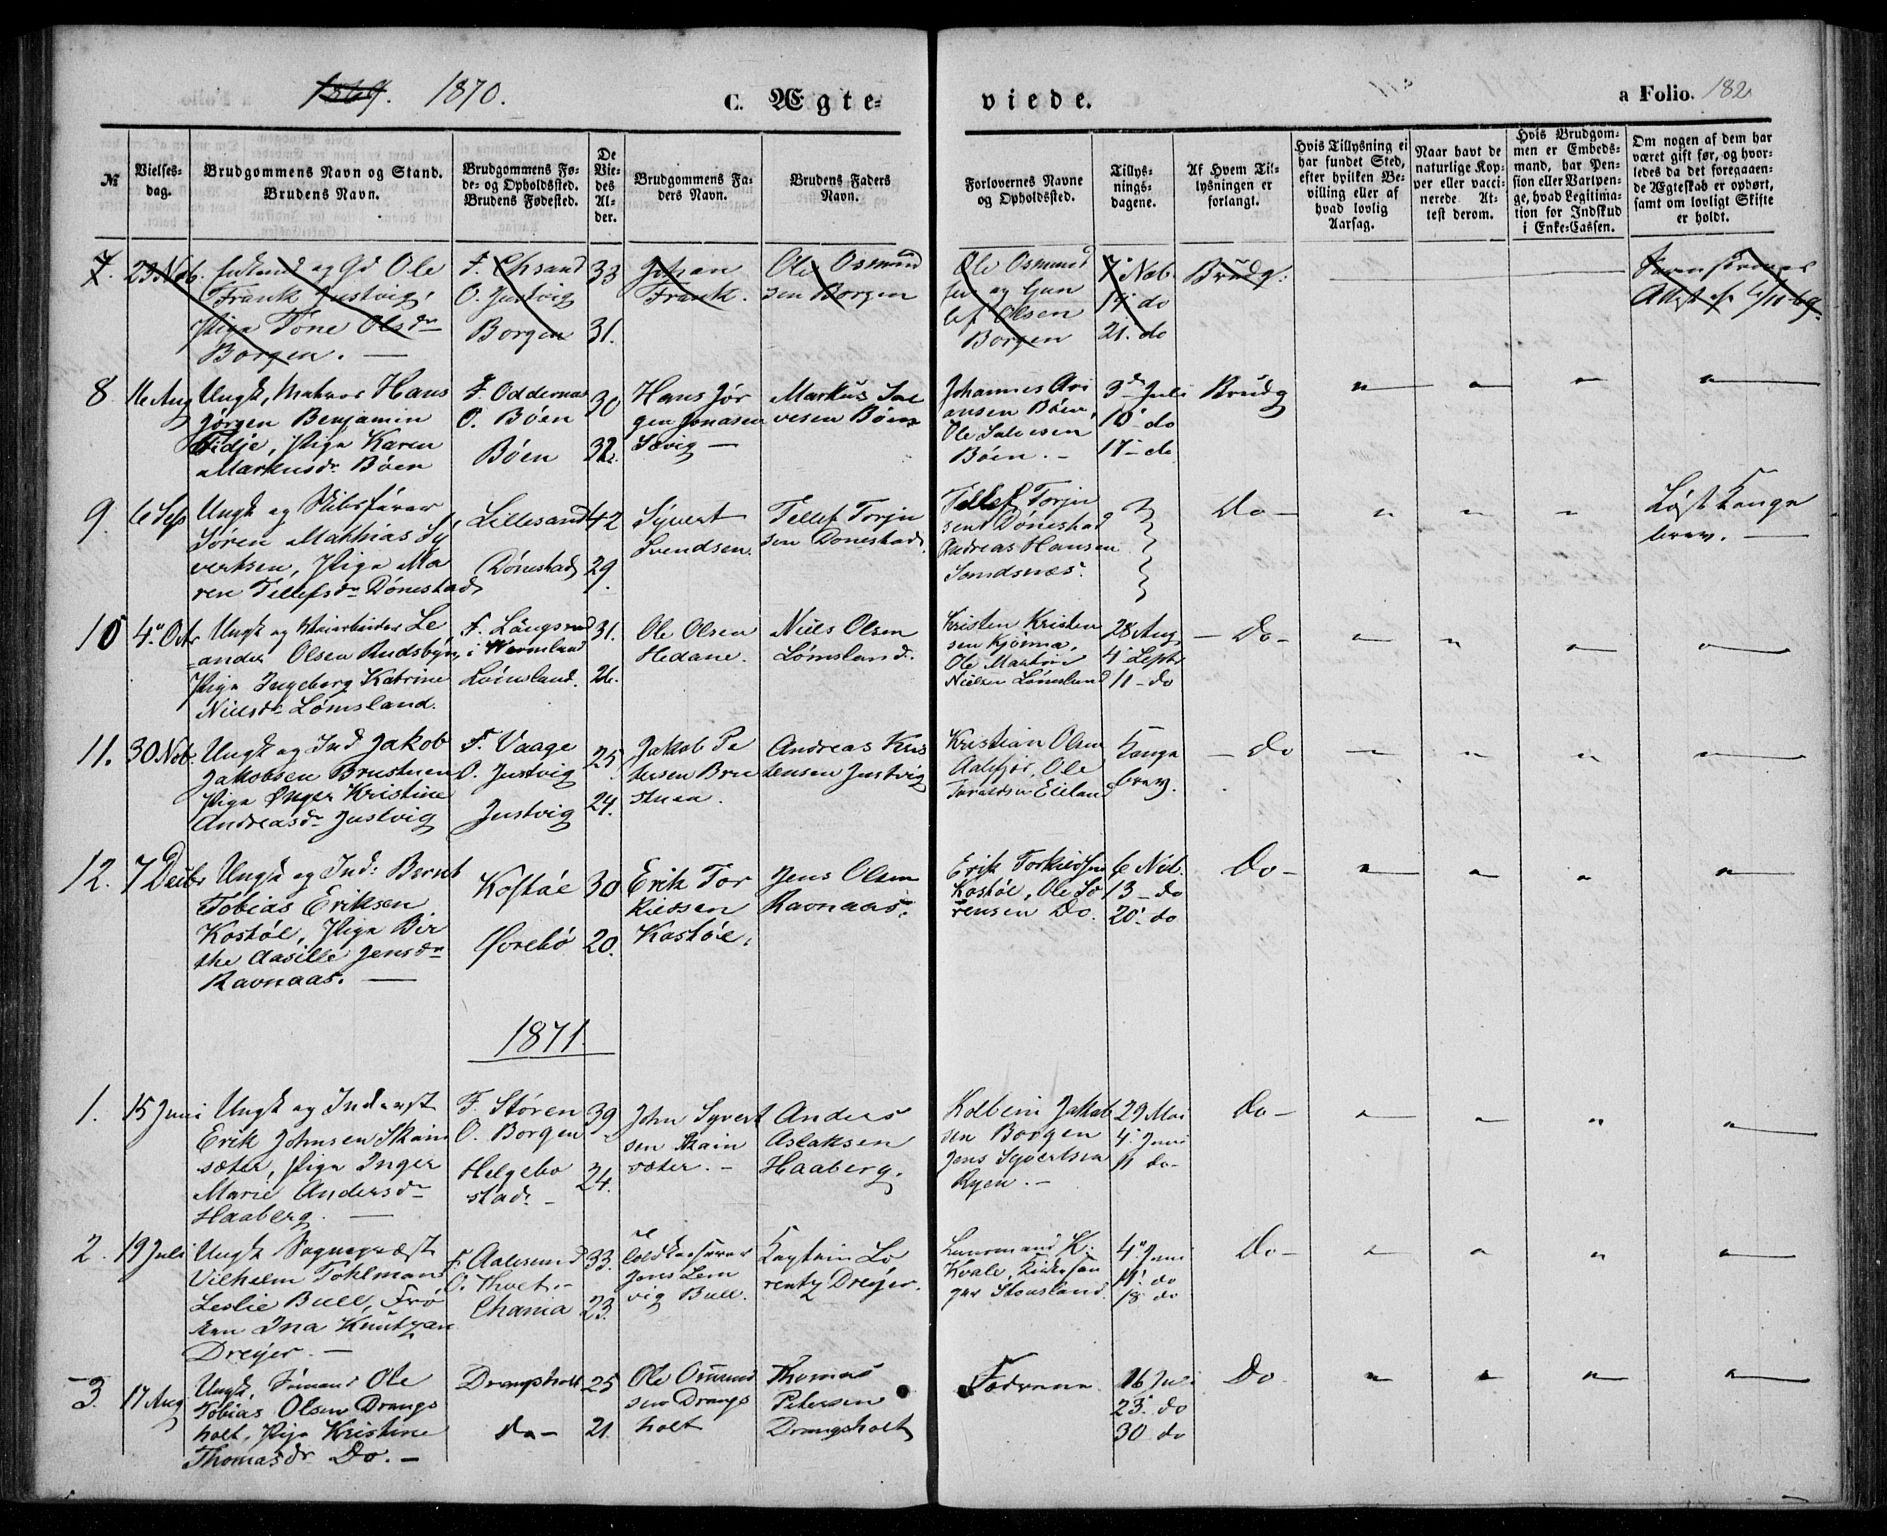 1869. 1870.
C. Ægte-
viede.
a Folio. 182
№
Vielses-
dag.
Brudgommens Navn og Stand.
Brudens Navn.
Brudgommens Fø-
de- og Opholdssted.
Brudens Fødested.
De
Vie-
des
Al-
der.
Brudgommens Fa-
ders Navn.
Brudens Faders
Navn.
Forlovernes Navne
og Opholdssted.
Tillys-
nings-
dagene.
Af Hvem Til-
lysningen er
forlangt.
Hvis Tillysning ei
har fundet Sted,
efter hvilken Be-
villing eller af
hvad lovlig
Aarsag.
Naar havt de
naturlige Kop-
per eller vacci-
nerede. At-
test derom.
Hvis Brudgom-
men er Embeds-
mand, har Pen-
sion eller Vartpen-
ge, hvad Legitima-
tion for Indskud
i Enke-Cassen.
Om nogen af dem har
været gift før, og hvor-
ledes da det foregaaen-
de Ægteskab er ophørt,
samt om lovligt Skifte
er holdt.
7. 23 Nov. Enkem og Gd Ole
Frank Justvig,
Pige Tone Olsdr
Borgen. —
F. Chrsand
O. Justvig
Borgen
33
31.
Johan
Frank.
Ole Osmund
sen Borgen
Ole Osmund
sen og Gun
lef Olsen
Borgen
7 Nov
14 do
21. do
Brudg.
Attest af 4/11-69.
8. 16 Aug Ungk, Matros Hans
Jørgen Benjamin
Tidje, Pige Karen
Markusdr Böen
F. Oddernæs
O. Böen
Böen
30
32.
Hans Jør
gen Jonasen
Markus Sal
vesen Böen
Johannes Ari
ansen Böen,
Ole Salvesen
Böen. -
3de Juli
10 do
17 - do
Brudg
9. 6 Sep Ungk og Skibsfører
Sören Mathias Sy
vertsen, Pige Ma
ren Tellefsdr Dönestad
Lillesand
Dönestad
42
29.
Syvert
Svendsen.
Tellef Torju
sen Dönestad.
Tellef Torju
sen Dönestad
Andreas Hansen
Do -
Löst Konge
brev. —
10 4. Octr Ungk og Le
ander Olsen Rudsbyn,
Pige Ingeborg Katrine
Nielsdr Lömsland.
i Wermland
Lömsland.
31.
26.
Ole Olsen
Hedane.
Niels Olsen
Lömsland.
Kristen Kristen
sen
Ole Martin
Nielsen Lömsland
28 Aug
4 Septr
11 - do
Do -
11. 30 Nov. Ungk og Ind Jakob
Jakobsen Brustuen
Pige Inger Kristine
Andreasdr Justvig
F. Vaage
O. Justvig
Justvig
25
24.
Jakob Pe
dersen Bru
stuen.
Andreas Kris
tensen Justvig
Kristian Olsen
Ole
Konge
brev.
- Do
12. 7 Decbr Ungk og Ind: Bernt
Tobias Eriksen
Kostöl, Pige Bir
the Aasille Jensdr
Ravnaas. —
Kostöl
Övrebö
30
20.
Erik Tor
kildsen
Kostöl.
Jens Olsen
Ravnaas.
Erik Torkildsen
Kostöl, Ole Sö
rensen Do.
6 Nov.
13 - do
20. do
Do -
1871.
1. 15 Juni Ungk og Inderst
Erik Johnsen Skain
sæter, Pige Inger
Marie Andersdr
Haaberg. —
F. Stören
O. Borgen
Helgebo
stad. -
39
24.
John Syvert
sen Skain
sæter. -
Anders
Aslaksen
Haaberg.
Kolbein Jakob
sen Borgen
Jens Syvertsen
Ryen. -
29 Mai
4. Juni
11 do -
Do -
2. 19 Juli Ungk Sogneprest
Vilhelm Pohlman
Leslie Bull, Frö
ken Ina Knutzen
Dreyer. —
F. Aalesund
O. Tveit. -
Chania
33.
23.
Jens Lem
vig Bull.
Kaptein Lo
rentz Dreyer.
Lensmand K.
Kvale, Kirkesan
ger Stousland.
4. Juni
11. do
18 do
Do -
3. 17 Aug Ungk, Sömand Ole
Tobias Olsen Drangs
holt, Pige Kristine
Thomasdr Do. -
Drangsholt
do -
25
21.
Ole Osmund
sen Drangs
holt
Thomas
Petersen
Drangsholt
Fædrene.
16 Juli
23. do
30 do
Do